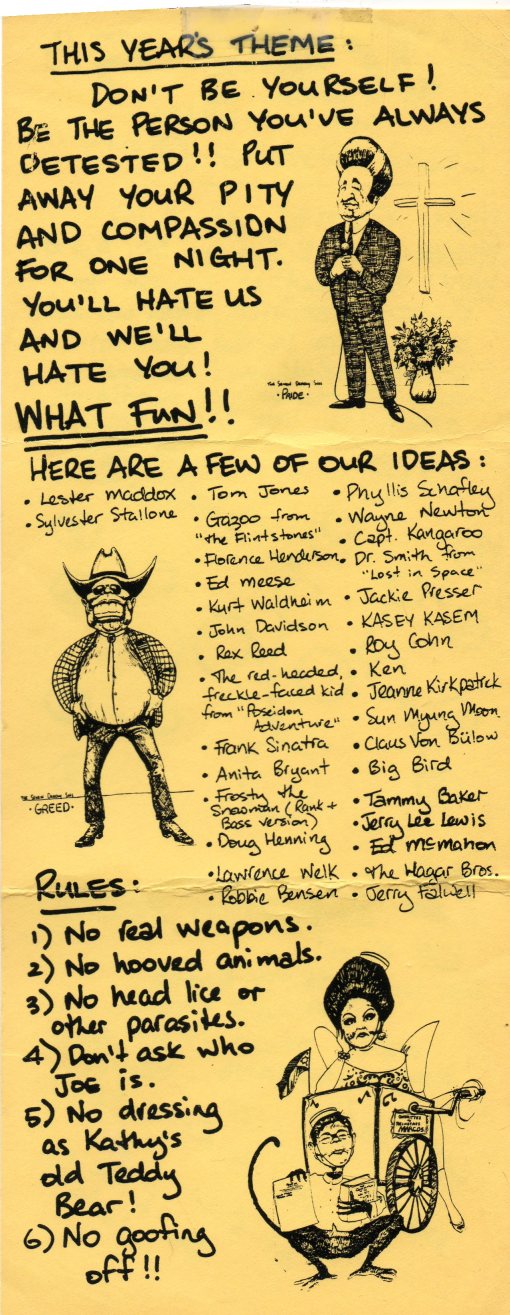 THIS YEAR'S THEME:
DON'T BE YOURSELF!
BE THE PERSON YOU'VE ALWAYS
DETESTED!! PUT
AWAY YOUR PITY
AND COMPASSION
FOR ONE NIGHT.
YOU'LL HATE US
AND WE'LL
HATE YOU!
WHAT FUN!!
THE SEVEN DEADLY SINS
•PRIDE•
HERE ARE A FEW OF OUR IDEAS:
• Lester Maddox
• Sylvester Stallone
THE SEVEN DEADLY SINS
•GREED•
• Tom Jones
• Gazoo from
"the Flintstones"
• Florence Henderson
• Ed meese
• Kurt Waldheim
• John Davidson
• Rex Reed
• The red-headed,
freckle-faced kid
from "Poseidon
Adventure"
• Frank Sinatra
• Anita Bryant
• Frosty the
Snowman (Rank +
Bass version)
• Doug Henning
• Lawrence Welk
• Robbie Bensen
• Phyllis Schafley
• Wayne Newton
• Capt. Kangaroo
• Dr. Smith from
"Lost in Space"
• Jackie Presser
• KASEY KASEM
• Roy Cohn
• Ken
• Jeanne Kirkpatrick
• Sun Myung Moon
• Claus Von Bülow
• Big Bird
• Tammy Baker
• Jerry Lee Lewis
• Ed McMahon
• The Hagar Bros.
• Jerry Falwell
RULES:
1) No real weapons.
2) No hooved animals.
3) No head lice or
other parasites.
4) Don't ask who
Joe is.
5) No dressing
as Kathy's
old Teddy
Bear!
6) No goofing
off!!
COMMITTEE
TO
REINSTATE
MARCOS